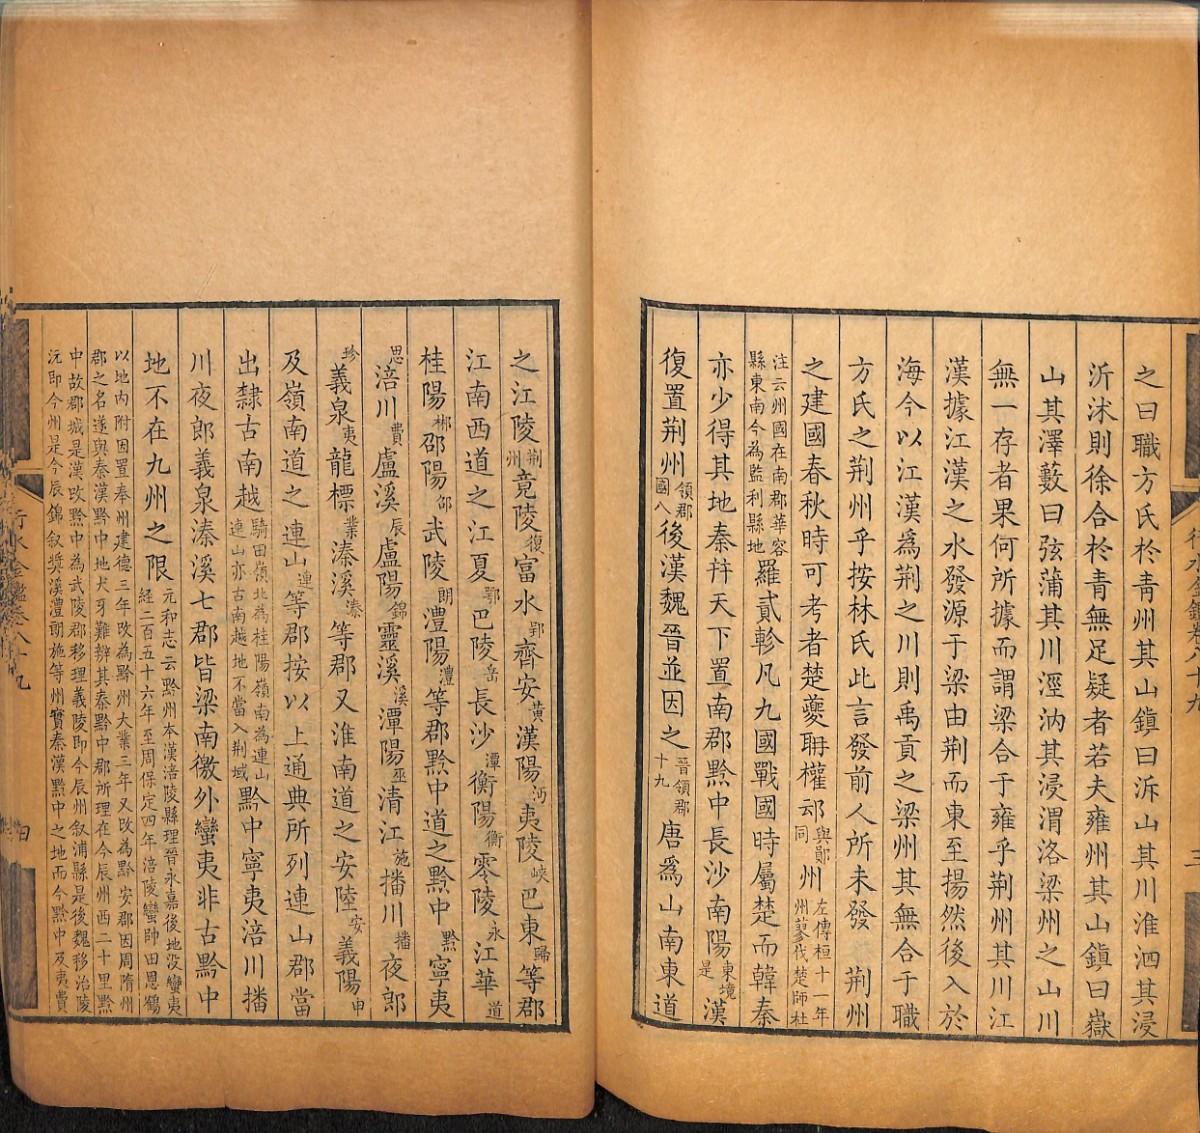 之曰職方氏於靑州其山鎭曰沂山其川淮泗其浸
沂沭則徐合於青無足疑者若夫雍州其山鎭曰嶽
山其澤藪曰弦蒲其川涇汭其浸渭洛梁州之山川
無一存者果何所據而謂梁合于雍乎荆州其川江
漢據江漢之水發源于梁由荆而東至揚然後入於
海今以江漢爲荆之川則禹貢之梁州其無合于職
方氏之荆州乎按林氏此言發前人所未發 荆州
之建國春秋時可考者楚夔耼權䢵與鄖同州左傳桓十一年州蓼伐楚師杜
注云州國在南郡華容縣東南今為監利縣地羅貳軫凡九國戰國時屬楚而韓秦
亦少得其地秦幷天下置南郡黔中長沙南陽東境是漢
復置荆州領郡國八後漢魏晉並因之晉領郡十九唐爲山南東道
之江陵荆州竟陵復富水郢齊安黃漢陽沔夷陵峽巴東歸等郡
江南西道之江夏鄂巴陵岳長沙潭衡陽衡零陵永江華道
桂陽郴邵陽邵武陵朗澧陽澧等郡黔中道之黔中黔寧夷
思涪川費盧溪辰盧陽錦靈溪溪潭陽巫清江施播川播夜郎
珍義泉夷龍標業溱溪溱等郡又淮南道之安陸安義陽申
及嶺南道之連山連等郡按以上通典所列連山郡當
出隸古南越騎田嶺北為桂陽嶺南為連山連山亦古南越地不當入荆域黔中寧夷涪川播
川夜郎義泉溱溪七郡皆梁南徼外蠻夷非古黔中
地不在九州之限元和志云黔州本漢涪陵縣理晉永嘉後地没蠻夷經二百五十六年至周保定四年涪陵蠻帥田恩鶴
以地内附因置奉州建德三年改為黔州大業三年又改為黔安郡因周隋州郡之名遂與秦漢黔中地犬牙難辨其秦黔中郡所理在今辰州西二十里黔
中故郡城是漢改黔中為武陵郡移理義陵即今辰州叙浦縣是後魏移治陵沅即今州是今辰錦叙奬溪澧朗施等州實秦漢黔中之地而今黔中及夷費